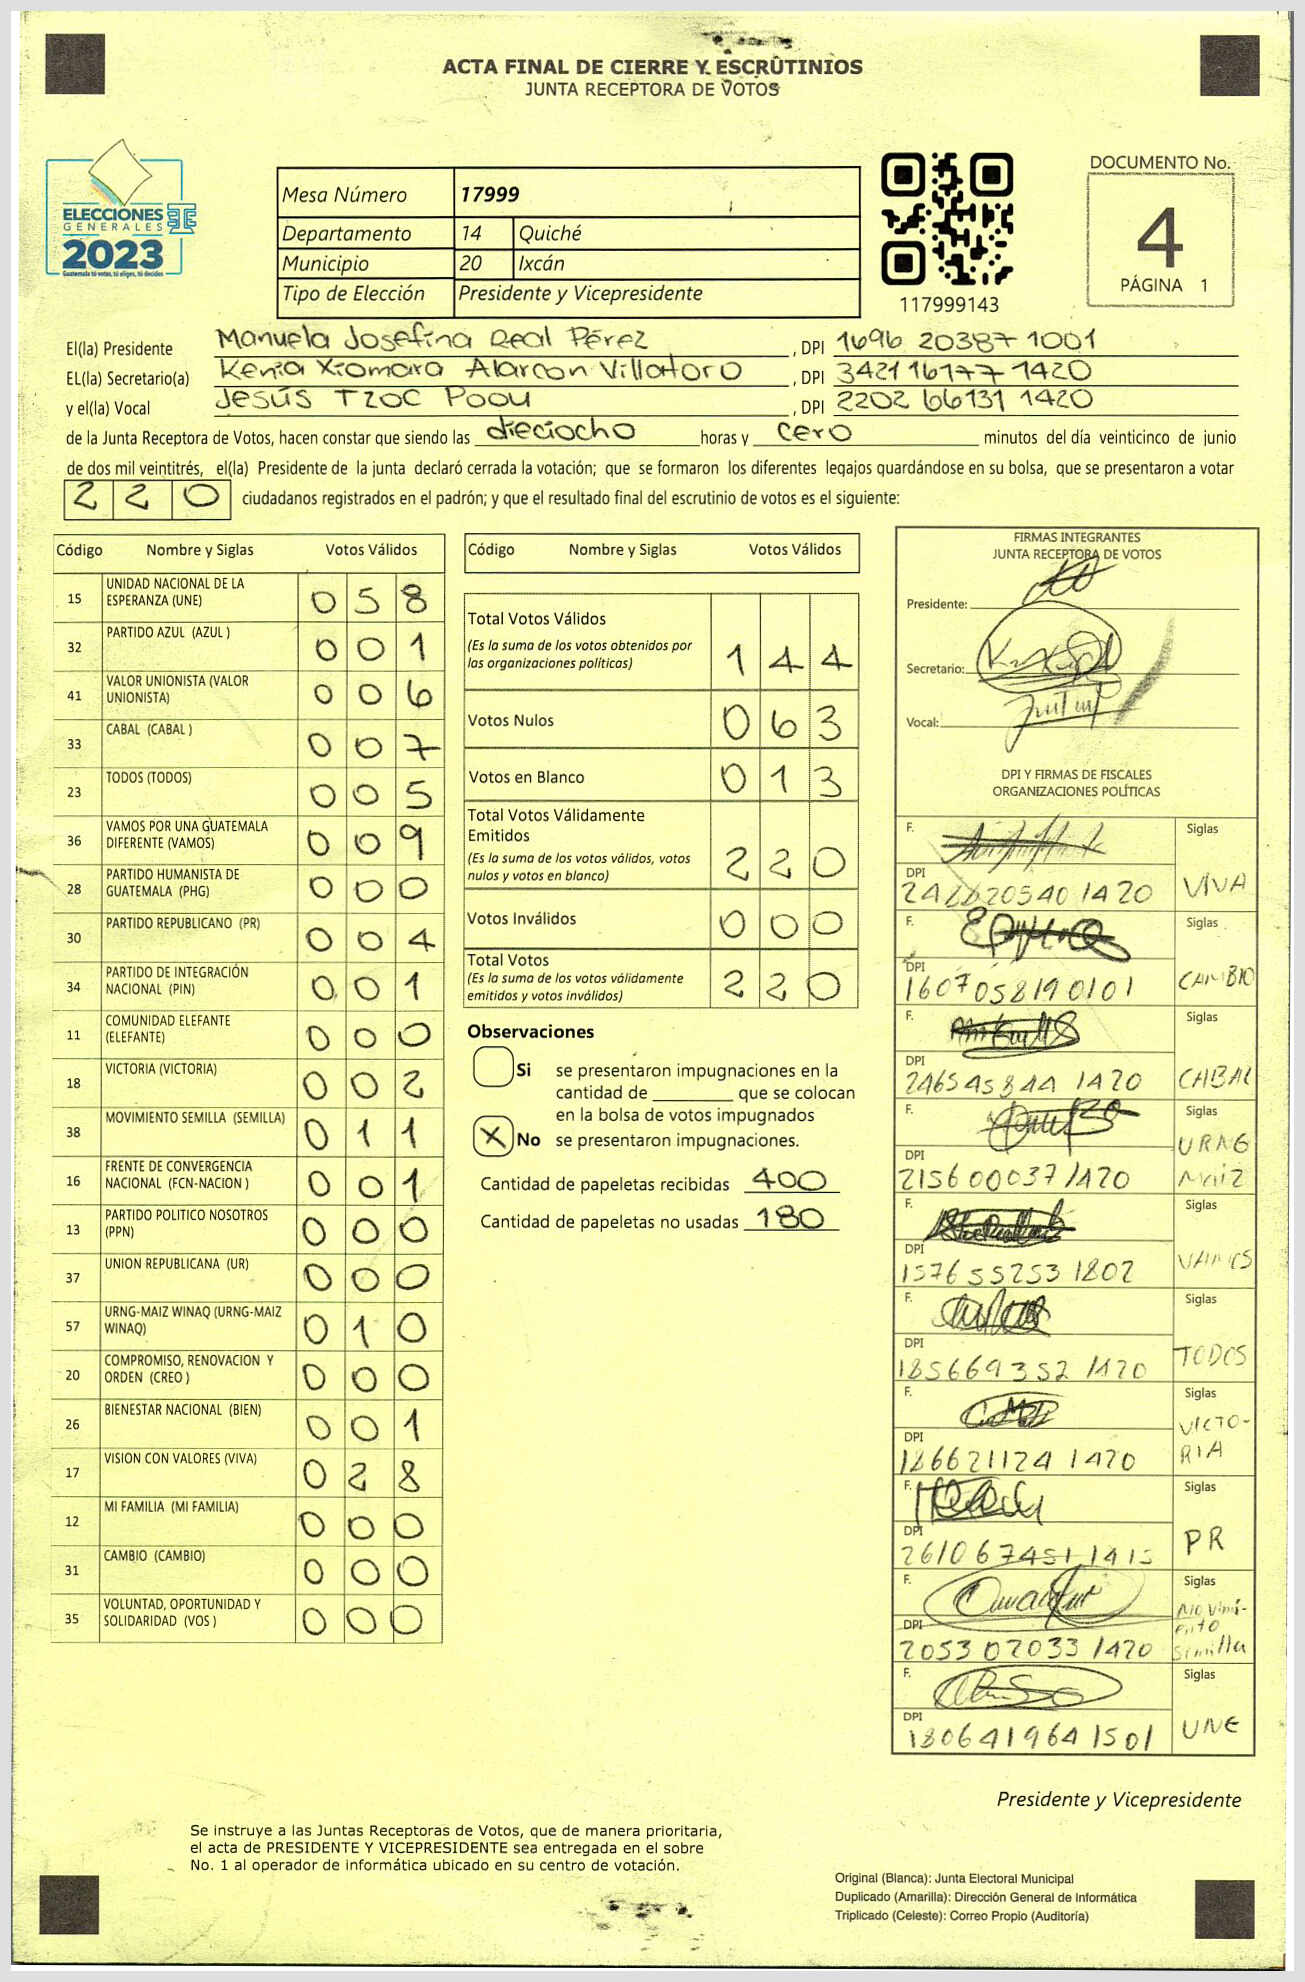 ACTA FINAL DE CIERRE Y ESCRUTINIOS
JUNTA RECEPTORA DE VOTOS
ELECCIONES
GENERALES
2023
Guatemala tú votas, tú eliges, tú decides
Mesa Número 17999
Departamento 14 Quiché
Municipio 20 Ixcán
Tipo de Elección Presidente y Vicepresidente
117999143
DOCUMENTO No.
4
PÁGINA 1
El(la) Presidente Manuela Josefina Real Pérez , DPI 1696 20387 1001
EL(la) Secretario(a) Kenia Xiomara Alarcon Villatoro , DPI 3421 16177 1420
y el(la) Vocal Jesús Tzoc Poou , DPI 2202 66131 1420
de la Junta Receptora de Votos, hacen constar que siendo las dieciocho horas y cero minutos del día veinticinco de junio
de dos mil veintitrés, el(la) Presidente de la junta declaró cerrada la votación; que se formaron los diferentes legajos quardándose en su bolsa, que se presentaron a votar
220 ciudadanos registrados en el padrón; y que el resultado final del escrutinio de votos es el siguiente:
Código Nombre y Siglas Votos Válidos
15 UNIDAD NACIONAL DE LA ESPERANZA (UNE) 058
32 PARTIDO AZUL (AZUL ) 001
41 VALOR UNIONISTA (VALOR UNIONISTA) 006
33 CABAL (CABAL ) 007
23 TODOS (TODOS) 005
36 VAMOS POR UNA GUATEMALA DIFERENTE (VAMOS) 009
28 PARTIDO HUMANISTA DE GUATEMALA (PHG) 000
30 PARTIDO REPUBLICANO (PR) 004
34 PARTIDO DE INTEGRACIÓN NACIONAL (PIN) 001
11 COMUNIDAD ELEFANTE (ELEFANTE) 000
18 VICTORIA (VICTORIA) 002
38 MOVIMIENTO SEMILLA (SEMILLA) 011
16 FRENTE DE CONVERGENCIA NACIONAL (FCN-NACION ) 001
13 PARTIDO POLITICO NOSOTROS (PPN) 000
37 UNION REPUBLICANA (UR) 000
57 URNG-MAIZ WINAQ (URNG-MAIZ WINAQ) 010
20 COMPROMISO, RENOVACION Y ORDEN (CREO ) 000
26 BIENESTAR NACIONAL (BIEN) 001
17 VISION CON VALORES (VIVA) 028
12 MI FAMILIA (MI FAMILIA) 000
31 CAMBIO (CAMBIO) 000
35 VOLUNTAD, OPORTUNIDAD Y SOLIDARIDAD (VOS ) 000
Código Nombre y Siglas Votos Válidos
Total Votos Válidos
(Es la suma de los votos obtenidos por las organizaciones políticas) 144
Votos Nulos 063
Votos en Blanco 013
Total Votos Válidamente Emitidos
(Es la suma de los votos válidos, votos nulos y votos en blanco) 220
Votos Inválidos 000
Total Votos
(Es la suma de los votos válidamente emitidos y votos inválidos) 220
Observaciones
Si se presentaron impugnaciones en la
cantidad de ________ que se colocan
en la bolsa de votos impugnados
X No se presentaron impugnaciones.
Cantidad de papeletas recibidas 400
Cantidad de papeletas no usadas 180
FIRMAS INTEGRANTES
JUNTA RECEPTORA DE VOTOS
Presidente:
Secretario:
Vocal:
DPI Y FIRMAS DE FISCALES
ORGANIZACIONES POLÍTICAS
F. Siglas
DPI VIVA
F. Siglas
DPI 1607 05819 0101 CAMBIO
F. Siglas
DPI 246545844 1420 CABAL
F. Siglas
DPI 215600037 1420 URNG Maiz
F. Siglas
DPI 157655253 1802 VAMOS
F. Siglas
DPI 185669352 1420 TODOS
F. Siglas
DPI 186621124 1420 VICTO-RIA
F. Siglas
DPI 2610 67451 1415 PR
F. Siglas
DPI 2053 02033 1420 Movimi-ento Semilla
F. Siglas
DPI 180641964 1501 UNE
Presidente y Vicepresidente
Se instruye a las Juntas Receptoras de Votos, que de manera prioritaria,
el acta de PRESIDENTE Y VICEPRESIDENTE sea entregada en el sobre
No. 1 al operador de informática ubicado en su centro de votación.
Original (Blanca): Junta Electoral Municipal
Duplicado (Amarilla): Dirección General de Informática
Triplicado (Celeste): Correo Propio (Auditoría)